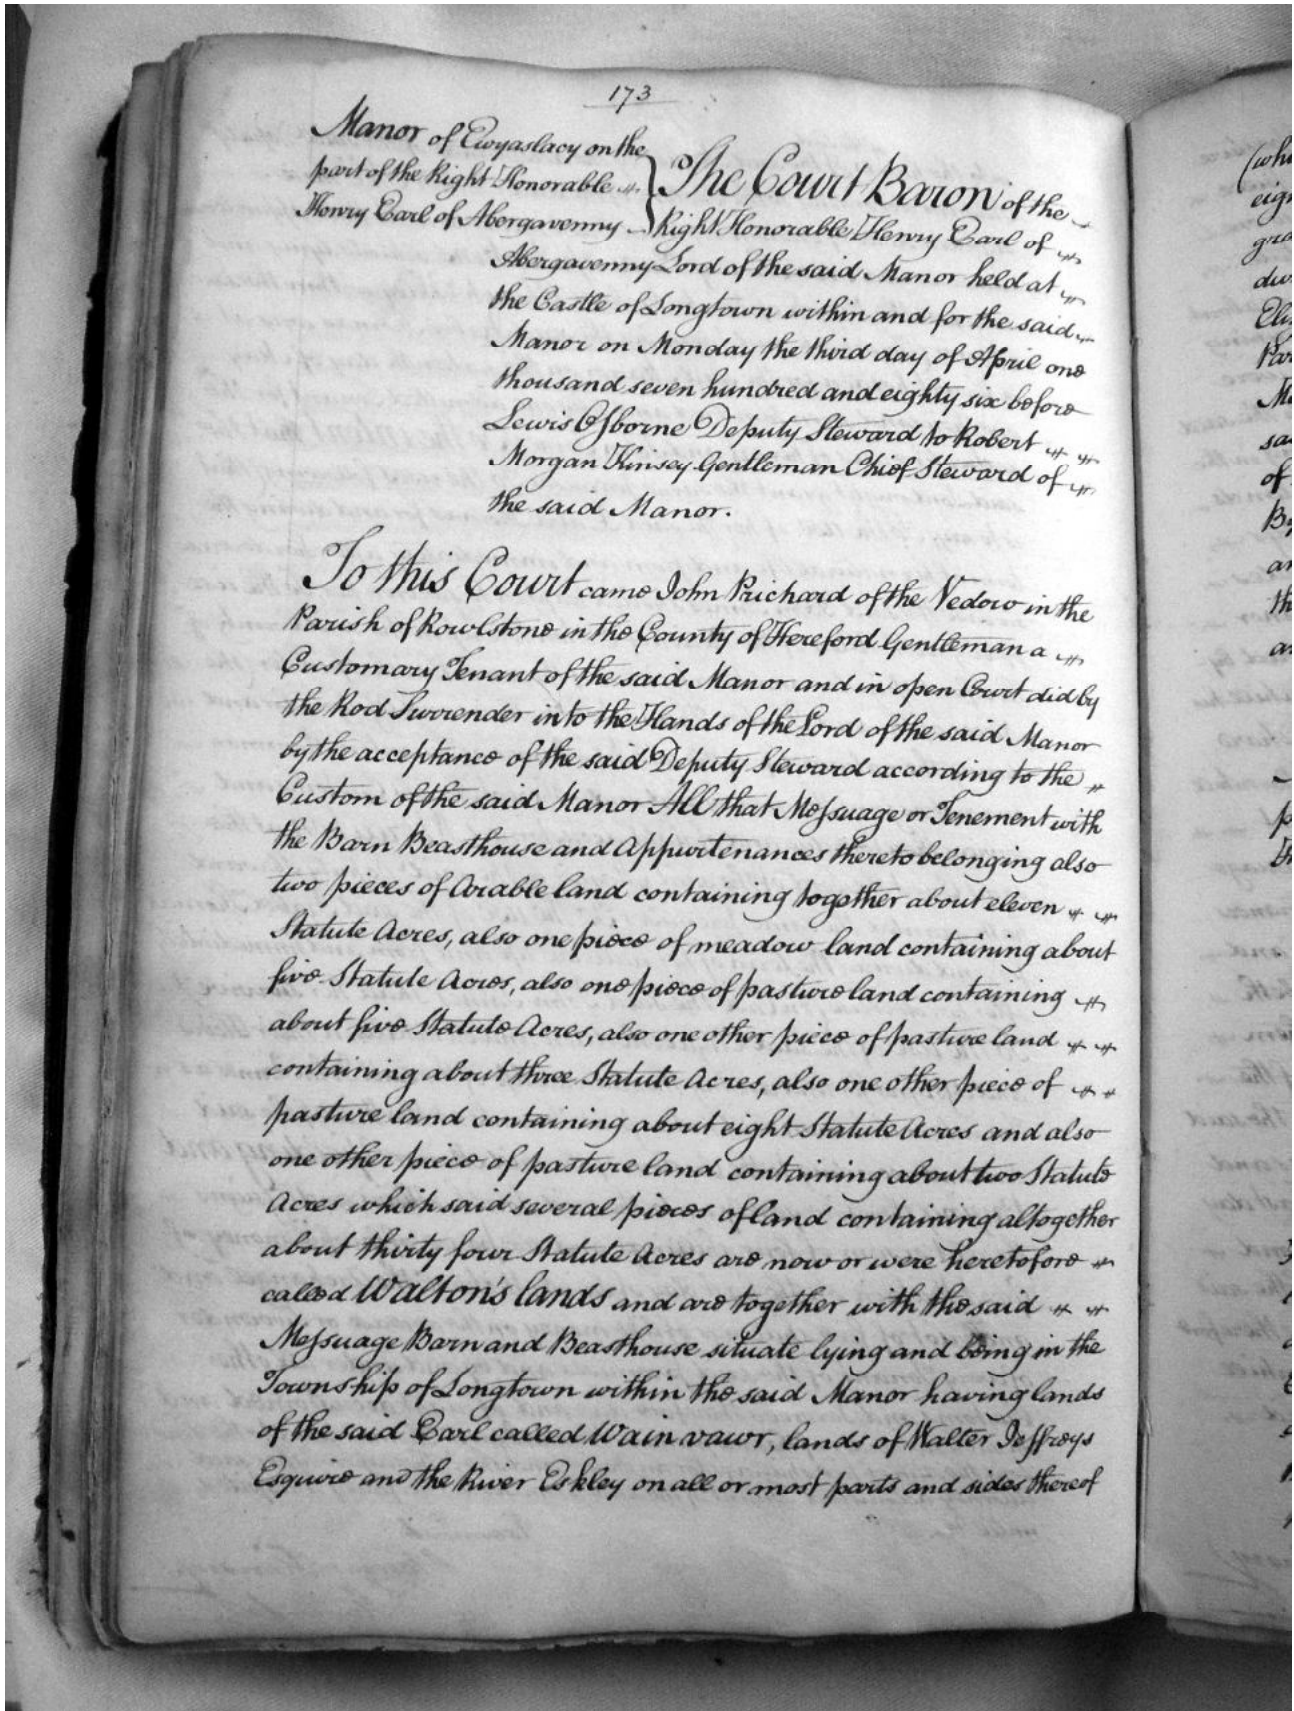 173
Manor of Ewyaslacy on the
part of the Right Honorable
Henry Earl of Abergavenny
The Court Baron of the
Right Honorable Henry Earl of
Abergavenny Lord of the said Manor held at
the Castle of Longtown within and for the said
Manor on Monday the third day of April one
thousand seven hundred and eighty six before
Lewis Osborne Deputy Steward to Robert
Morgan Kinsey Gentleman Chief Steward of
the said Manor.
To this Court came John Prichard of the Vedow in the
Parish of Rowlstone in the County of Hereford Gentleman a
Customary Tenant of the said Manor and in open Court did by
the Rod Surrender into the Hands of the Lord of the said Manor
by the acceptance of the said Deputy Steward according to the
Custom of the said Manor All that Meſsuage or Tenement with
the Barn Beasthouse and Appurtenances thereto belonging also
two pieces of Arable land containing together about eleven
Statute Acres, also one piece of meadow land containing about
five Statute Acres, also one piece of pasture land containing
about five Statute Acres, also one other piece of pasture land
containing about three Statute Acres, also one other piece of
pasture land containing about eight Statute Acres and also
one other piece of pasture land containing about two Statute
Acres which said several pieces of land containing altogether
about thirty four Statute Acres are now or were heretofore
called Walton's lands and are together with the said
Meſsuage Barn and Beasthouse situate lying and being in the
Township of Longtown within the said Manor having lands
of the said Earl called Wain vawr, lands of Walter Jeffreys
Esquire and the River Eskley on all or most parts and sides thereof